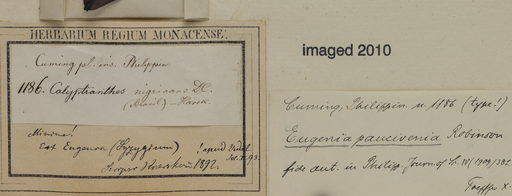 HERBARIUM REGIUM MONACENSE.
Cuming pl. ins. Philippin
1186. Calyptranthes nigricans DC.
Minime!
Est Eugenia (Syzygium) ! apud Vidal
1892.
imaged 2010
Cuming, Philippin n. 1186 (type!)
Eugenia paucivenia Robinson
fide aut. in Philipp. Journ. of Sc. IV (1909) 382